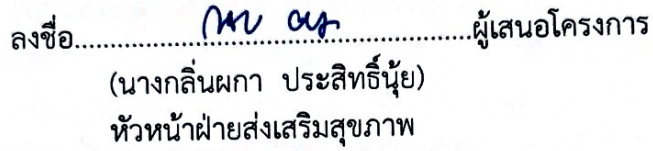 ลงชื่อ................................................ผู้เสนอโครงการ
(นางกลิ่นผกา ประสิทธิ์นุ้ย)
หัวหน้าฝ่ายส่งเสริมสุขภาพ